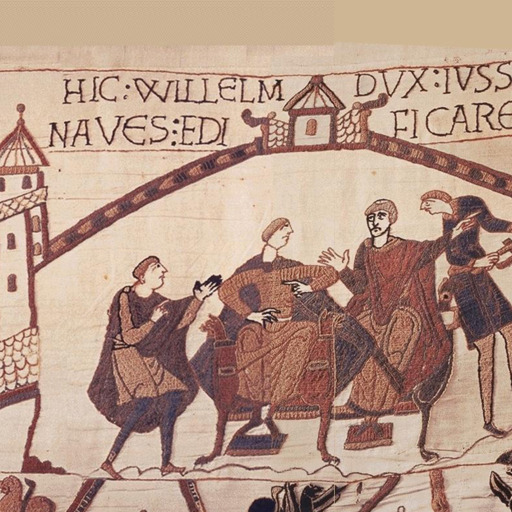 HIC: WILLELM DVX: IVSS
NAVES: EDI FICARE